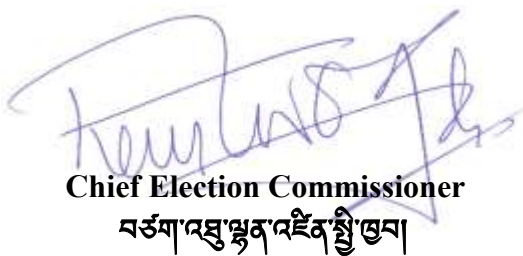 Chief Election Commissioner
བཙག་འཐུ་ལྷན་འཛིན་སྤྱི་ཁྱབ།